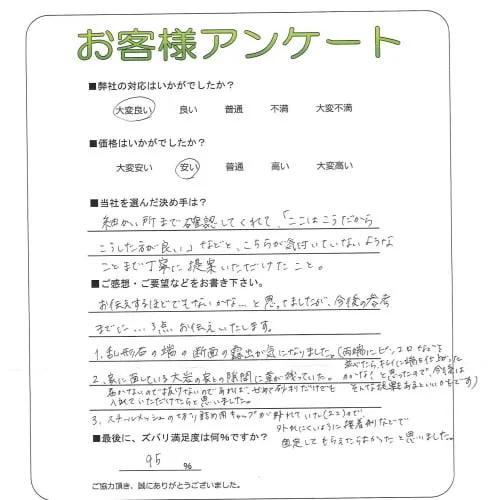 お客様アンケート
■弊社の対応はいかがでしたか?
大変良い 良い 普通 不満 大変不満
■価格はいかがでしたか?
大変安い 安い 普通 高い 大変高い
■当社を選んだ決め手は?
細かい所まで確認してくれて、「ここはこうだから
こうした方が良い」などと、こちらが気付いていないような
ことまで丁寧に提案いただけたこと。
■ご感想・ご要望などをお書き下さい。
お伝えするほどでもないかな…と思ってましたが、今後の参考
までに…3点お伝えいたします。
1. 乱形石の端の断面の露出が気になりました。(両端にピンコロなどを
並べたら、キレイに端を仕切った
2. 家に面している大岩の家との隙間に葉が残っていた。
かな?と思ったので、今後は
届かないので抜けないのであれば、せめて砂利だけでも
そんな提案もあるといいかもです)
入れていただけたらと思いました。
3. スチールメッシュの切り詰め用キャップが外れていた(2コ)ので、
外れにくいように接着剤などで
固定してもらえたらよかったと思いました。
■最後に、ズバリ満足度は何%ですか?
95 %
ご協力頂き、誠にありがとうございました。